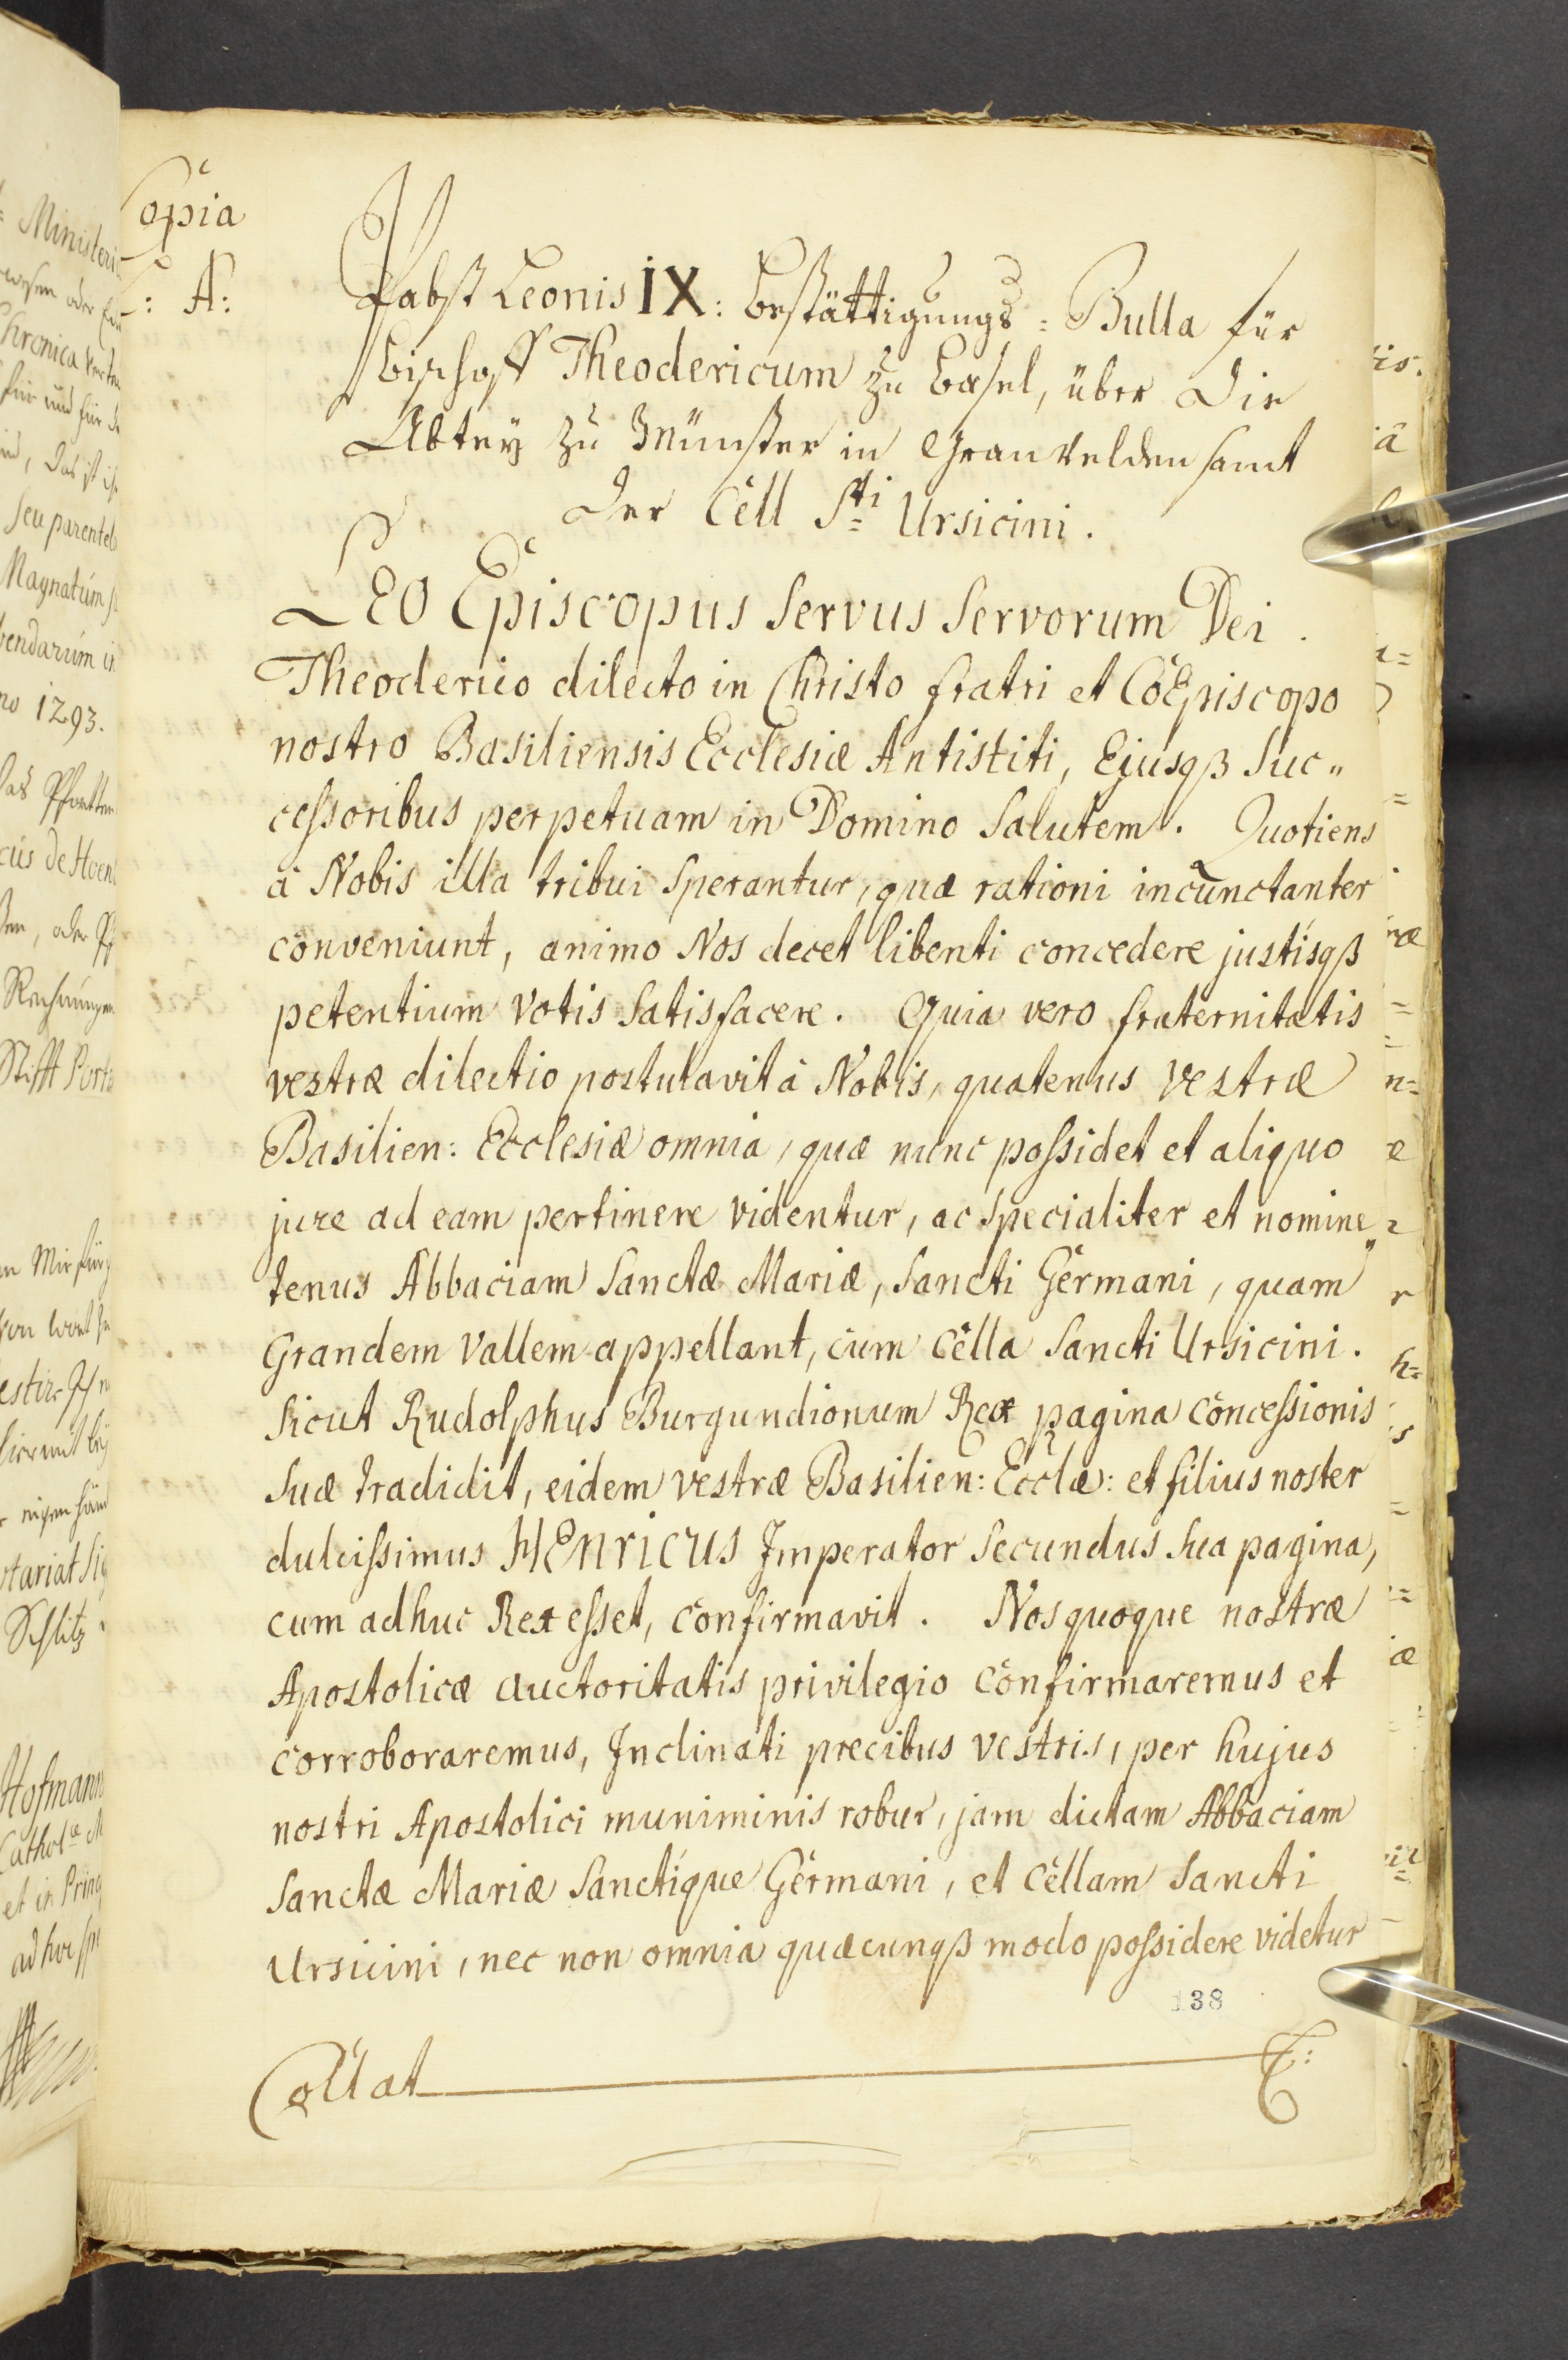 Copia
: A:
Pabst Leonis IX: Bestättigungs = Bulla für
Bischoff Theodericum zu Basel, über die
Abtey zu Münster in Granvelden samt
der Cell Sti Ursicini.
LEO Episcopus Servus Servorum Dei.
Theoderico dilecto in Christo fratri et CoEpiscopo
nostro Basiliensis Ecclesiæ Antistiti, Ejusqß Suc„
cessoribus perpetuam in Domino Salutem. Quotiens
à Nobis illa tribui Sperantur, quæ rationi incunctanter
conveniunt, animo Nos decet libenti concedere justisqß
petentium votis Satisfacere. Quia vero fraternitatis
vestræ dilectio postulavit à Nobis, quatenus vestræ
Basilien: Ecclesiæ omnia, quæ nunc possidet et aliquo
jure ad eam pertinere videntur, ac Specialiter et nomine„
tenus Abbaciam Sanctæ Mariæ, Sancti Germani, quam
Grandem Vallem appellant, cum Cella Sancti Ursicini.
Sicut Rudolphus Burgundionum Rex pagina concessionis
Suæ tradidit, eidem vestræ Basilien: Ecclæ: et filius noster
dulcissimus HENRICUS Imperator Secundus Sua pagina,
cum adhuc Rex esset, confirmavit. Nos quoque nostræ
Apostolicæ auctoritatis privilegio confirmaremus et
corroboraremus, Inclinati precibus vestris, per hujus
nostri Apostolici muniminis robur, jam dictam Abbaciam
Sanctæ Mariæ Sanctique Germani, et Cellam Sancti
Ursicini, nec non omnia quæcunqß modo possidere videtur
138
Collat
Ministeri
oder
Chronica
für und für
das ist
Seu parentel
Magnatum
bendarum
1293.
das
de Hoen
oder
Rechnungen
Stifft
Mir
Schlitz
Hofmann
Cathol
et in Prin
ad hoc